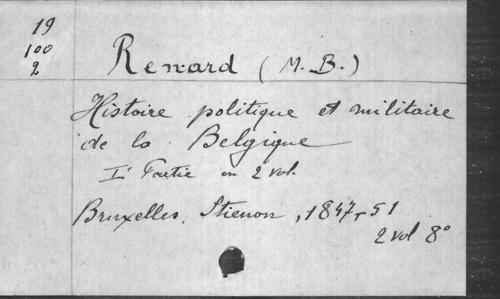 19
100
2
Renard (M. B.)
Histoire politique et militaire
de la Belgique
Iᵉ Partie en 2 vol.
Bruxelles, Stienon, 1847-51
2 vol 8°